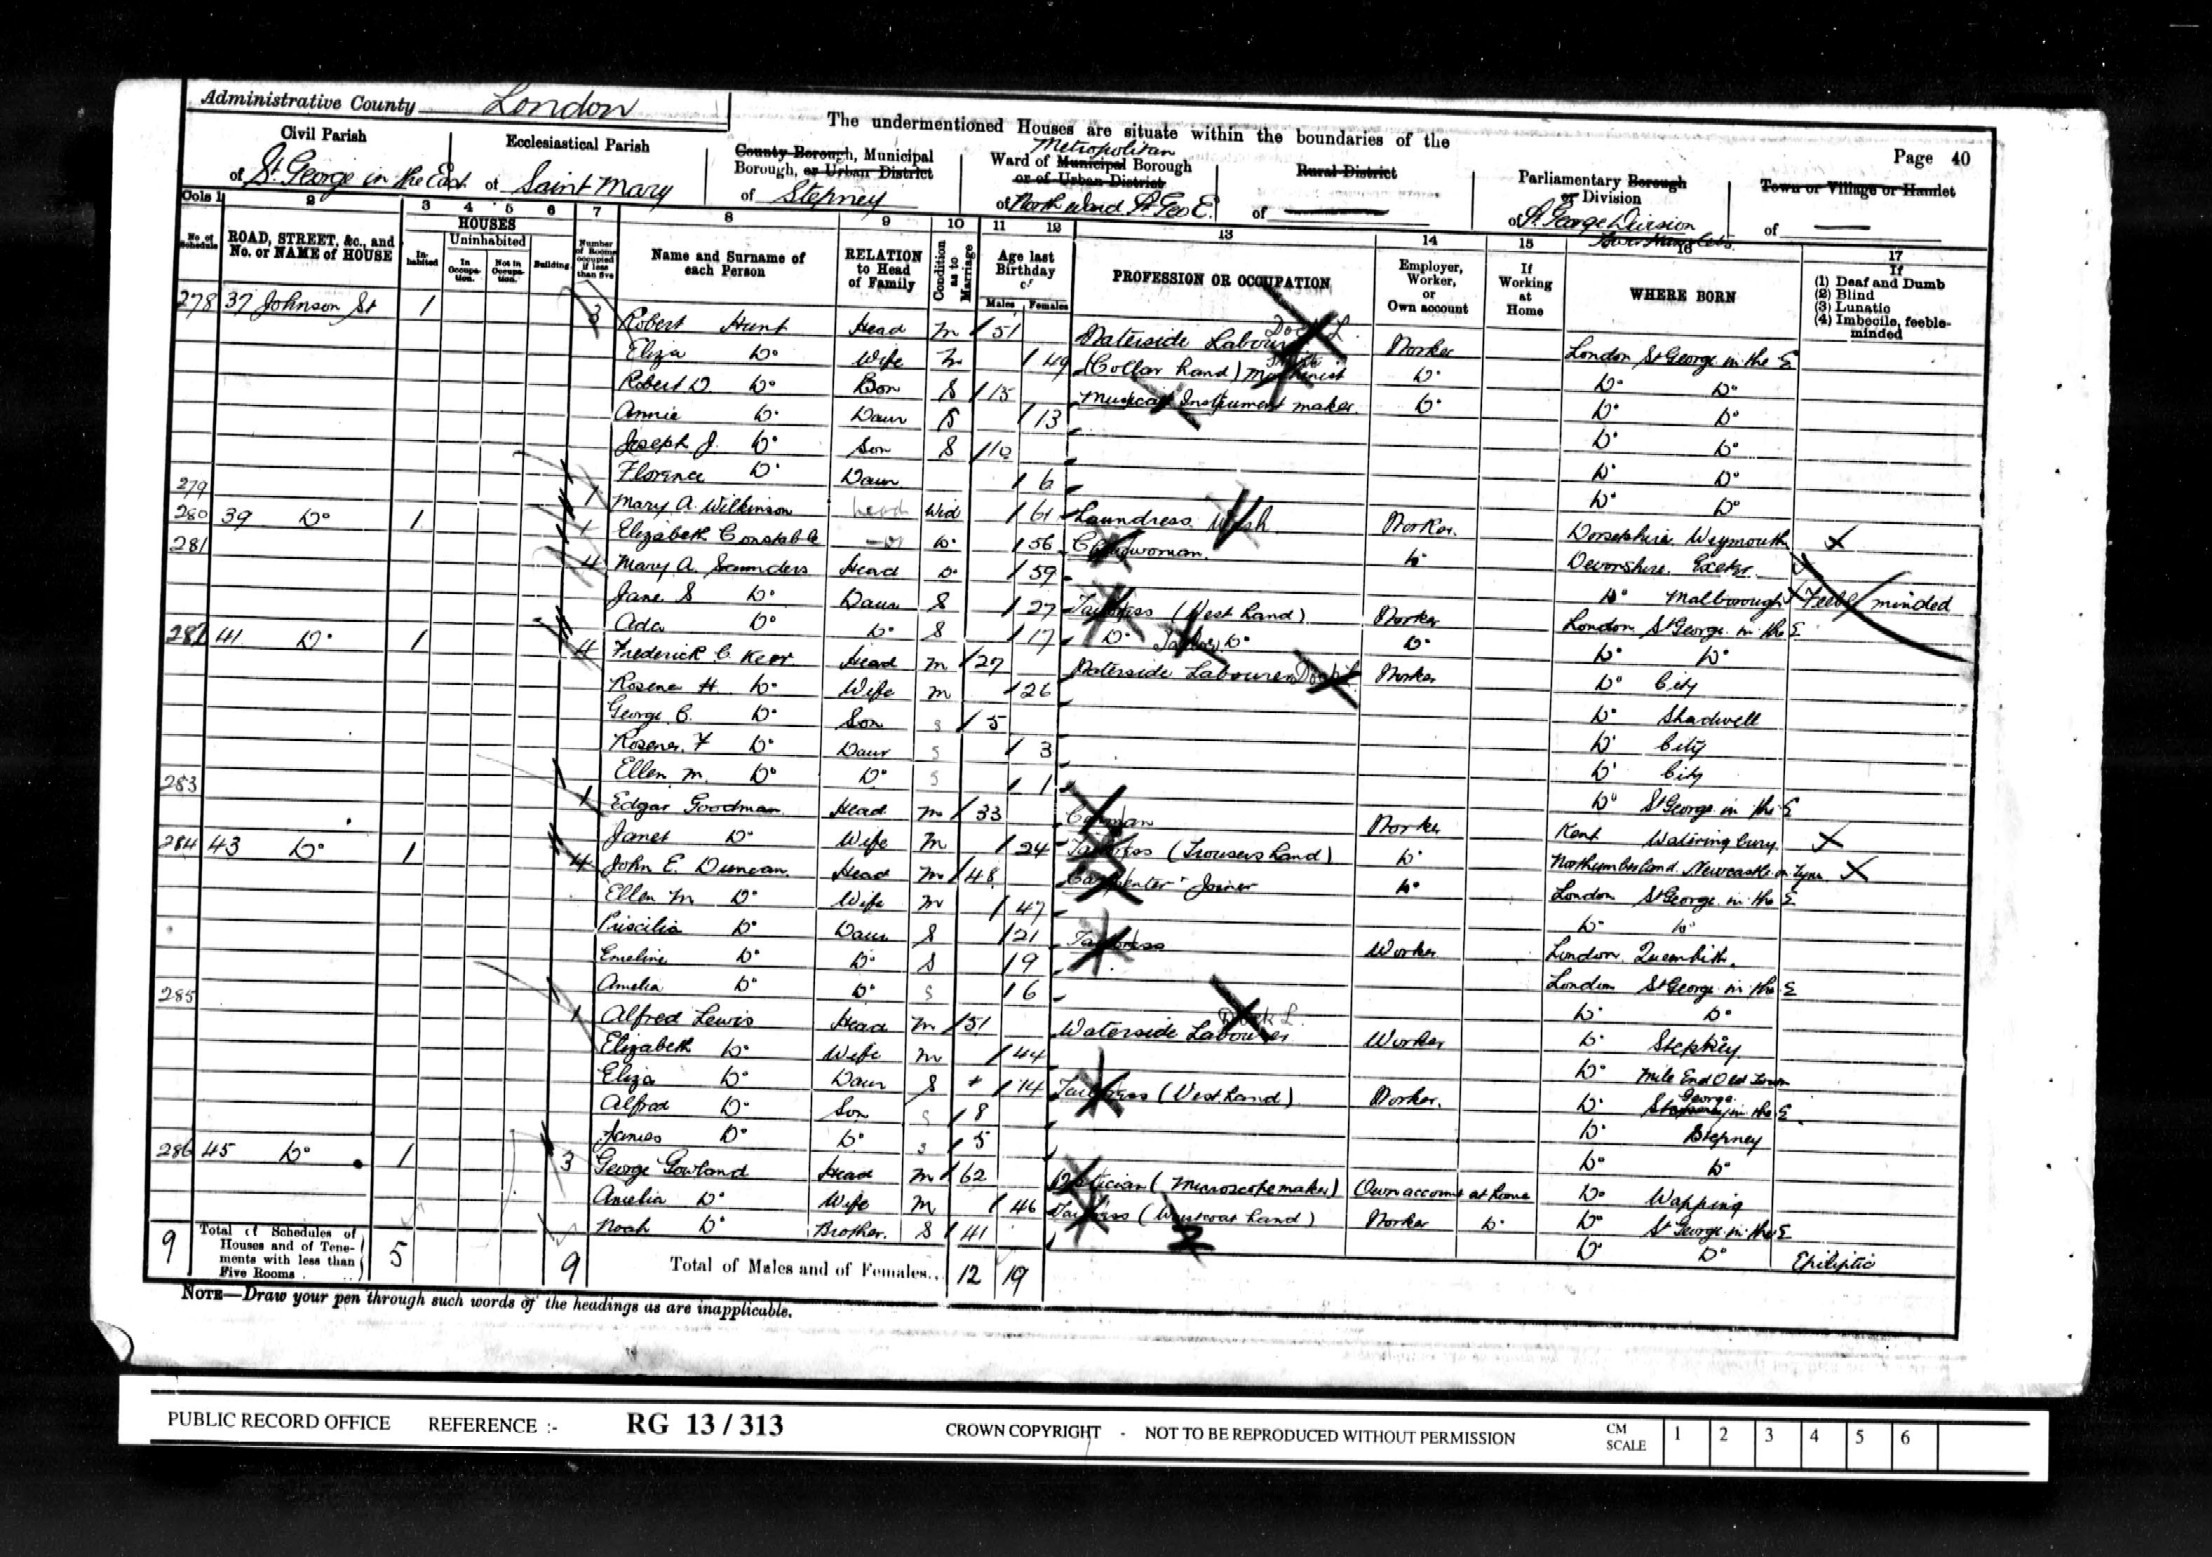 Administrative County London
The undermentioned Houses are situate within the boundaries of the
Page 40
Civil Parish of St. George in the East
Ecclesiastical Parish of Saint Mary
County Borough, Municipal Borough, or Urban District of Stepney
Metropolitan
Ward of Municipal Borough or of Urban District of North Ward St Geo E.
Rural District of
Parliamentary Borough or Division of St George Division Tower Hamlets
Town or Village or Hamlet of
Cols 1 2 3 4 5 6 7 8 9 10 11 12 13 14 15 16 17
No. of Schedule
ROAD, STREET, &c., and No. or NAME of HOUSE
HOUSES
Inhabited
Uninhabited
In Occupation.
Not in Occupation.
Building
Number of Rooms occupied if less than five
Name and Surname of each Person
RELATION to Head of Family
Condition as to Marriage
Age last Birthday of
Males Females
PROFESSION OR OCCUPATION
Employer, Worker, or Own account
If Working at Home
WHERE BORN
If (1) Deaf and Dumb (2) Blind (3) Lunatic (4) Imbecile, feeble-minded
278 37 Johnson St 1 3 Robert Hunt Head M 51 Waterside Labourer Dock L. Worker London St George in the E
Eliza Do Wife M 49 (Collar hand) Machinist Do Do Do
Robert D. Do Son S 15 Musical Instrument maker Do Do Do
Annie Do Daur S 13 Do Do
Joseph J. Do Son S 10 Do Do
Florence Do Daur 6 Do Do
279 1 Mary A. Wilkinson head Wid 61 Laundress Wash Worker Dorsetshire Weymouth
280 39 Do 1 1 Elizabeth Constable Do 56 Charwoman Do Devonshire Exeter
281 4 Mary A. Saunders Head Do 59 Do Malborough
Jane S Do Daur S 27 Tailoress (Vest hand) Worker London St George in the E Feeble minded
Ada Do Do S 17 Do Tailor Do Do Do Do
282 41 Do 1 4 Frederick C. Keor Head M 27 Waterside Labourer Dock L Worker Do City
Rosena H. Do Wife M 26 Do Shadwell
George C. Do Son S 5 Do City
Rosena F Do Daur S 3 Do City
Ellen M. Do Do S 1 Do St George in the E
283 1 Edgar Goodman Head M 33 Carman Worker Kent Watringbury
Janet Do Wife M 24 Tailoress (Trousers hand) Do Northumberland Newcastle on Tyne
284 43 Do 1 4 John E. Duncan Head M 48 Carpenter Joiner Do London St George in the E
Ellen M Do Wife M 47 Do Do
Priscilia Do Daur S 21 Tailoress Worker London
Emeline Do Do S 9 London St George in the E
Amelia Do Do S 6 Do Do
285 1 Alfred Lewis Head M 51 Waterside Labourer Dock L. Worker Do Stepney
Elizabeth Do Wife M 44 Do Mile End Old Town
Eliza Do Daur S 14 Tailoress (Vest hand) Worker. Do St George in the E
Alfred Do Son S 8 Do Stepney
James Do Do S 5 Do Do
286 45 Do 1 3 George Gowland Head M 62 Optician (Microscope maker) Own account at home Do Wapping
Amelia Do Wife M 46 Tailoress (Waistcoat hand) Worker Do Do St George in the E
Noah Do Brother. S 41 Do Do Epiliptic
9 Total of Schedules of Houses and of Tenements with less than Five Rooms 5 9 Total of Males and of Females... 12 19
NOTE—Draw your pen through such words of the headings as are inapplicable.
PUBLIC RECORD OFFICE REFERENCE :- RG 13 / 313 CROWN COPYRIGHT - NOT TO BE REPRODUCED WITHOUT PERMISSION CM SCALE 1 2 3 4 5 6